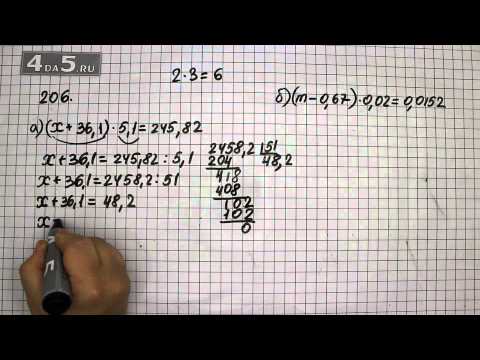 4DA5.RU
2·3=6
206.
а)(x+36,1)·5,1=245,82
x+36,1=245,82:5,1
x+36,1=2458,2:51
x+36,1=48,2
x
2458,2 51
204 48,2
418
408
102
102
0
б)(m-0,67)·0,02=0,0152